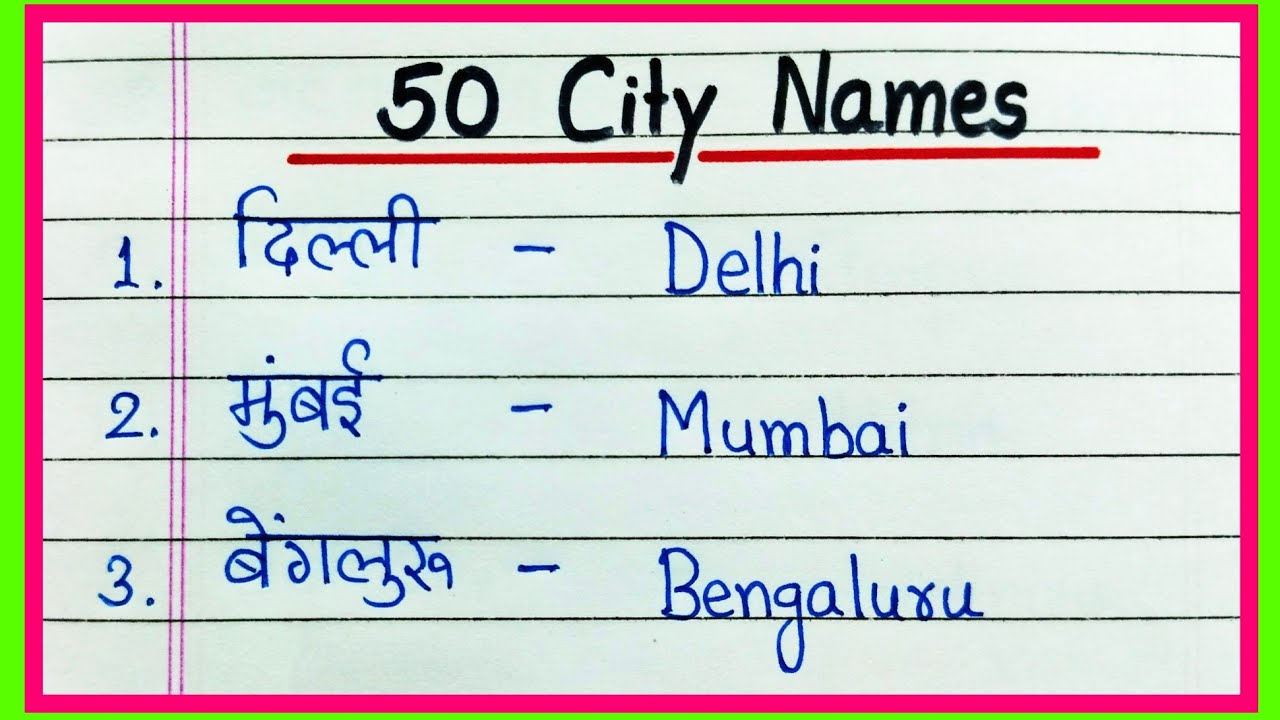 50 City Names
1. दिल्ली - Delhi
2. मुंबई - Mumbai
3. बेंगलुरु - Bengaluru